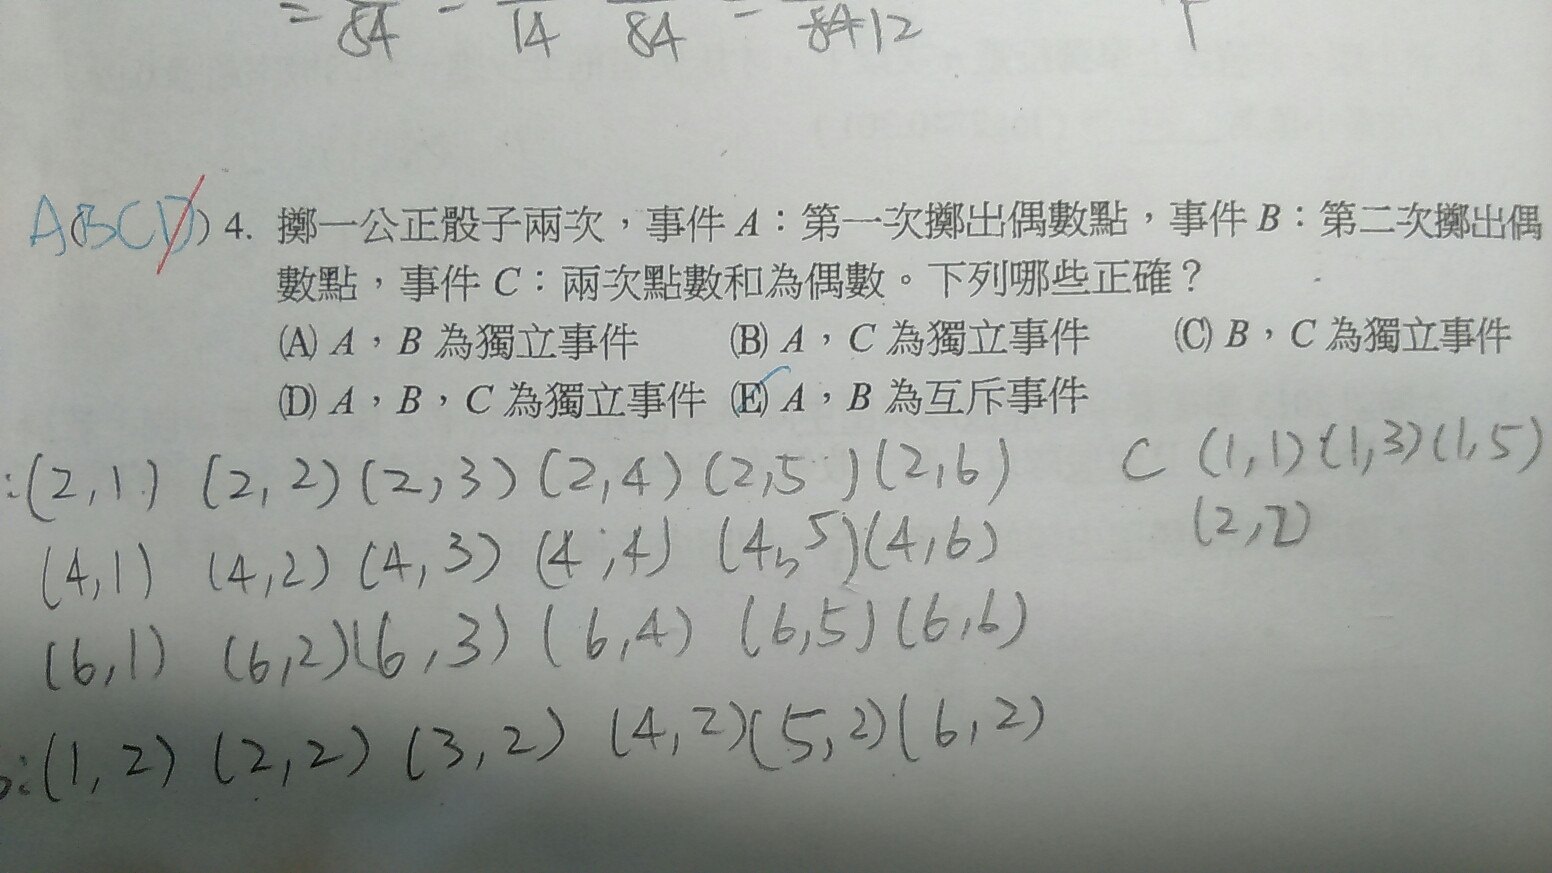 = 84 - 14 84 = 84+12
ABCD ) 4. 擲一公正骰子兩次，事件 A：第一次擲出偶數點，事件 B：第二次擲出偶
數點，事件 C：兩次點數和為偶數。下列哪些正確？
(A) A，B 為獨立事件 (B) A，C 為獨立事件 (C) B，C 為獨立事件
(D) A，B，C 為獨立事件 (E) A，B 為互斥事件
:(2,1) (2,2) (2,3) (2,4) (2,5) (2,6) C (1,1) (1,3) (1,5)
(4,1) (4,2) (4,3) (4,4) (4,5) (4,6) (2,2)
(6,1) (6,2) (6,3) (6,4) (6,5) (6,6)
:(1,2) (2,2) (3,2) (4,2) (5,2) (6,2)